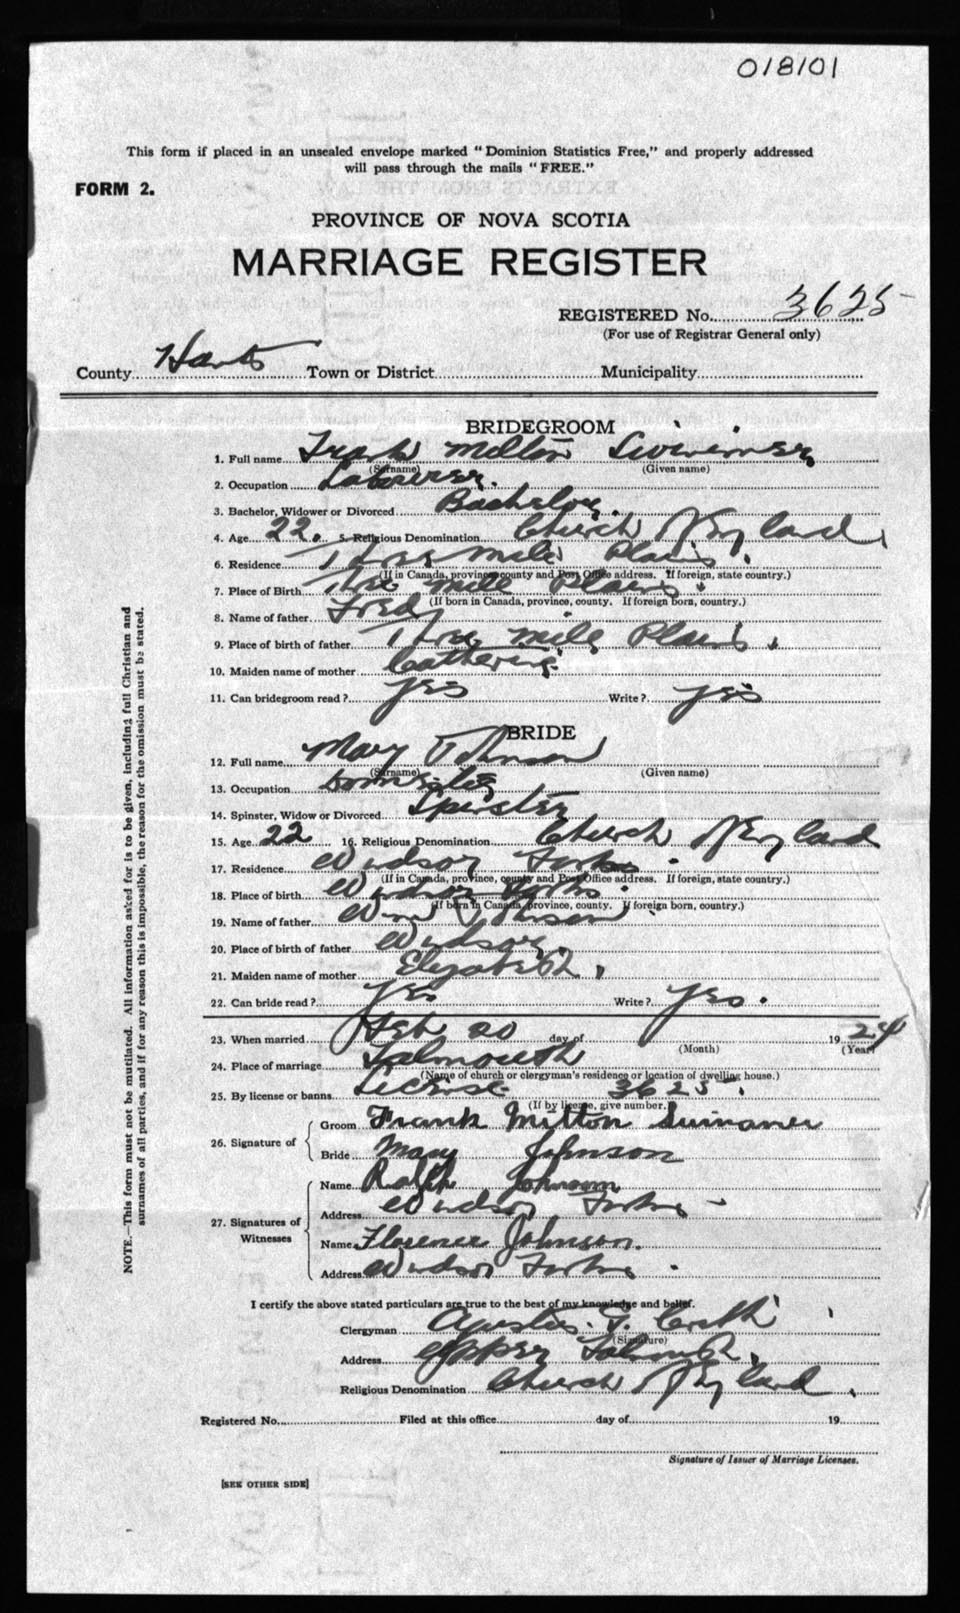 018101
This form if placed in an unsealed envelope marked "Dominion Statistics Free," and properly addressed
will pass through the mails "FREE."
FORM 2.
PROVINCE OF NOVA SCOTIA
MARRIAGE REGISTER
REGISTERED No. 3625
(For use of Registrar General only)
County Hants Town or District Municipality
BRIDEGROOM
1. Full name Frank Milton
(Surname) (Given name)
2. Occupation Labourer.
3. Bachelor, Widower or Divorced Bachelor.
4. Age 22. 5. Religious Denomination Church of England
6. Residence Three Mile Plains.
(If in Canada, province, county and Post Office address. If foreign, state country.)
7. Place of Birth Three Mile Plains.
(If born in Canada, province, county. If foreign born, country.)
8. Name of father Fred
9. Place of birth of father Three Mile Plains.
10. Maiden name of mother Catherine.
11. Can bridegroom read? yes Write? yes
BRIDE
12. Full name Mary Johnson
(Surname) (Given name)
13. Occupation Domestic
14. Spinster, Widow or Divorced Spinster
15. Age 22 16. Religious Denomination Church of England
17. Residence Windsor Forks.
(If in Canada, province, county and Post Office address. If foreign, state country.)
18. Place of birth Windsor Forks.
(If born in Canada, province, county. If foreign born, country.)
19. Name of father Wm Johnson.
20. Place of birth of father Windsor.
21. Maiden name of mother Elizabeth.
22. Can bride read? yes Write? yes.
23. When married Feb 20 day of 1924
(Month) (Year)
24. Place of marriage Falmouth
(Name of church or clergyman's residence or location of dwelling house.)
25. By license or banns License 3625.
(If by license, give number.)
26. Signature of Groom Frank Milton
Bride Mary Johnson
27. Signatures of Witnesses Name Ralph Johnson
Address Windsor Forks
Name Florence Johnson.
Address Windsor Forks.
I certify the above stated particulars are true to the best of my knowledge and belief.
Clergyman
(Signature)
Address Upper Falmouth.
Religious Denomination Church of England.
Registered No. Filed at this office day of 19
Signature of Issuer of Marriage Licenses.
[SEE OTHER SIDE]
NOTE.—This form must not be mutilated. All information asked for is to be given, including full Christian and
surnames of all parties, and if for any reason this is impossible, the reason for the omission must be stated.